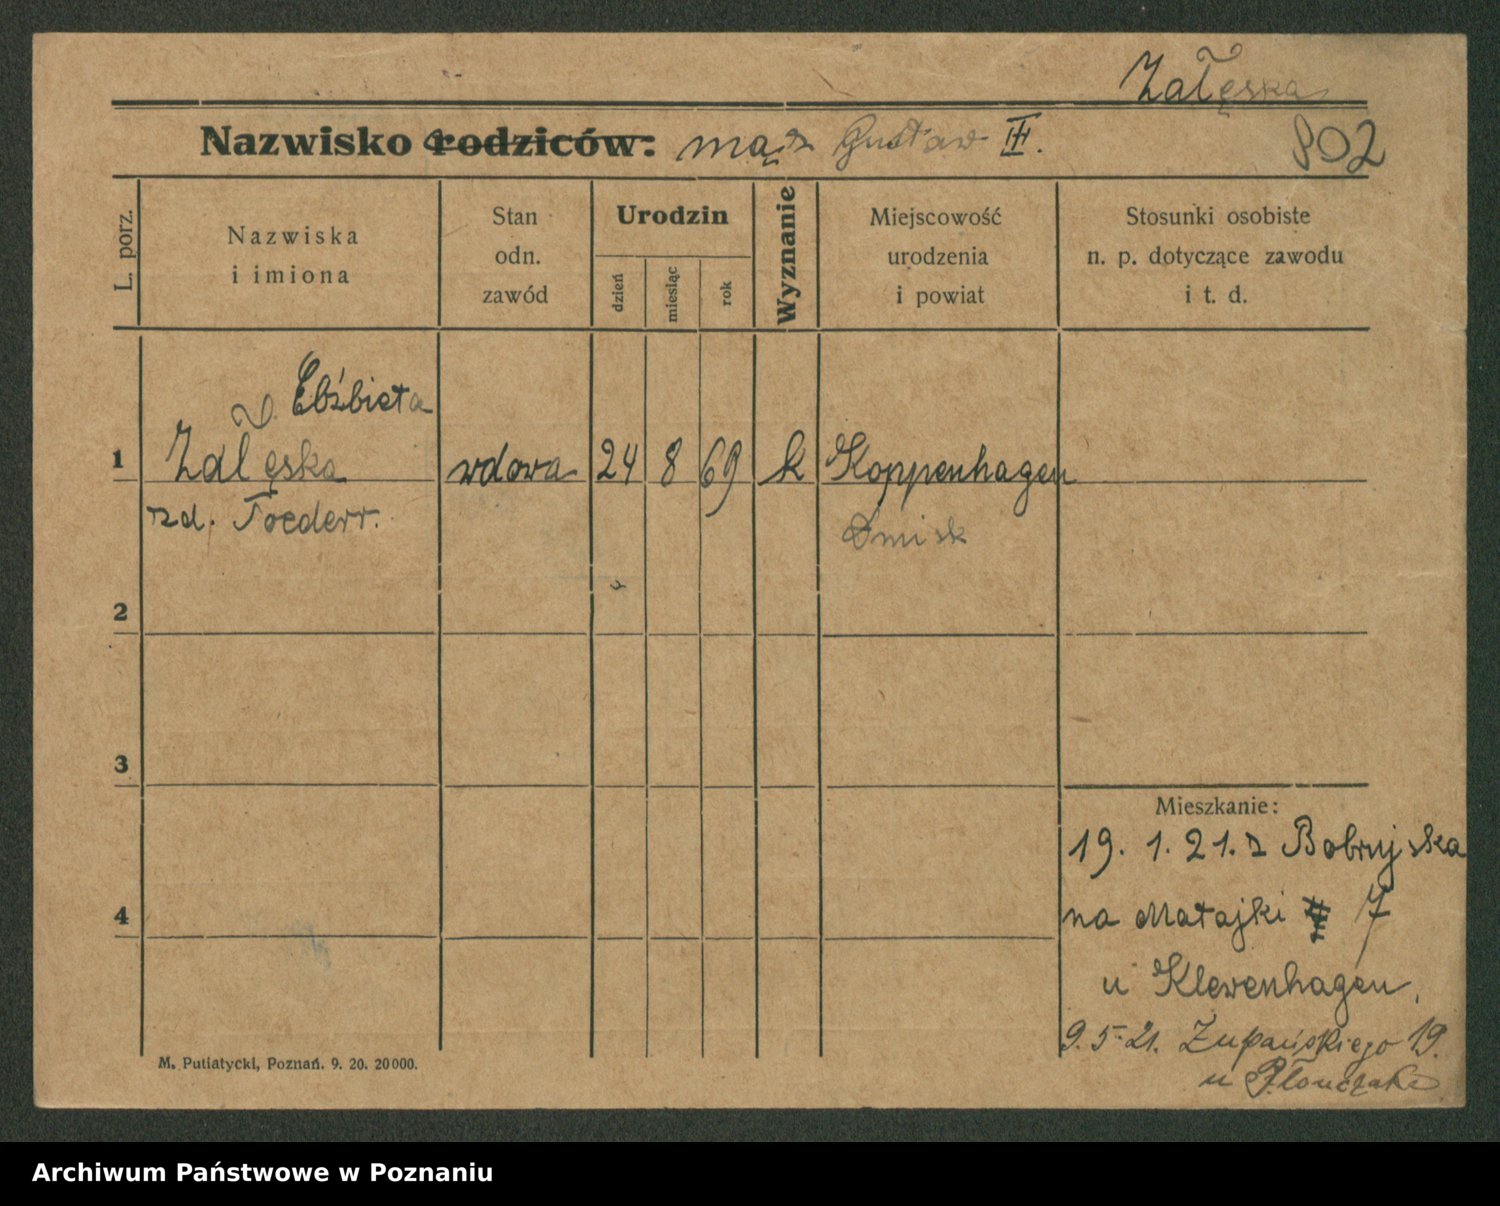 Załęska
Nazwisko rodziców: mąż Gustaw III.
802
L. porz.
Nazwiska
i imiona
Stan
odn.
zawód
Urodzin
dzień
miesiąc
rok
Wyznanie
Miejscowość
urodzenia
i powiat
Stosunki osobiste
n. p. dotyczące zawodu
i t. d.
Elżbieta
1 Załęska wdowa 24 8 69 k Koppenhagen
rzd. Foederr.
2
3
4
Mieszkanie:
19. 1. 21. z Bobrujska
na Matajki 7
u Klevenhagen,
9. 5. 21. Zupańskiego 19.
u Płończaka
M. Putiatycki, Poznań. 9. 20. 20000.
Archiwum Państwowe w Poznaniu